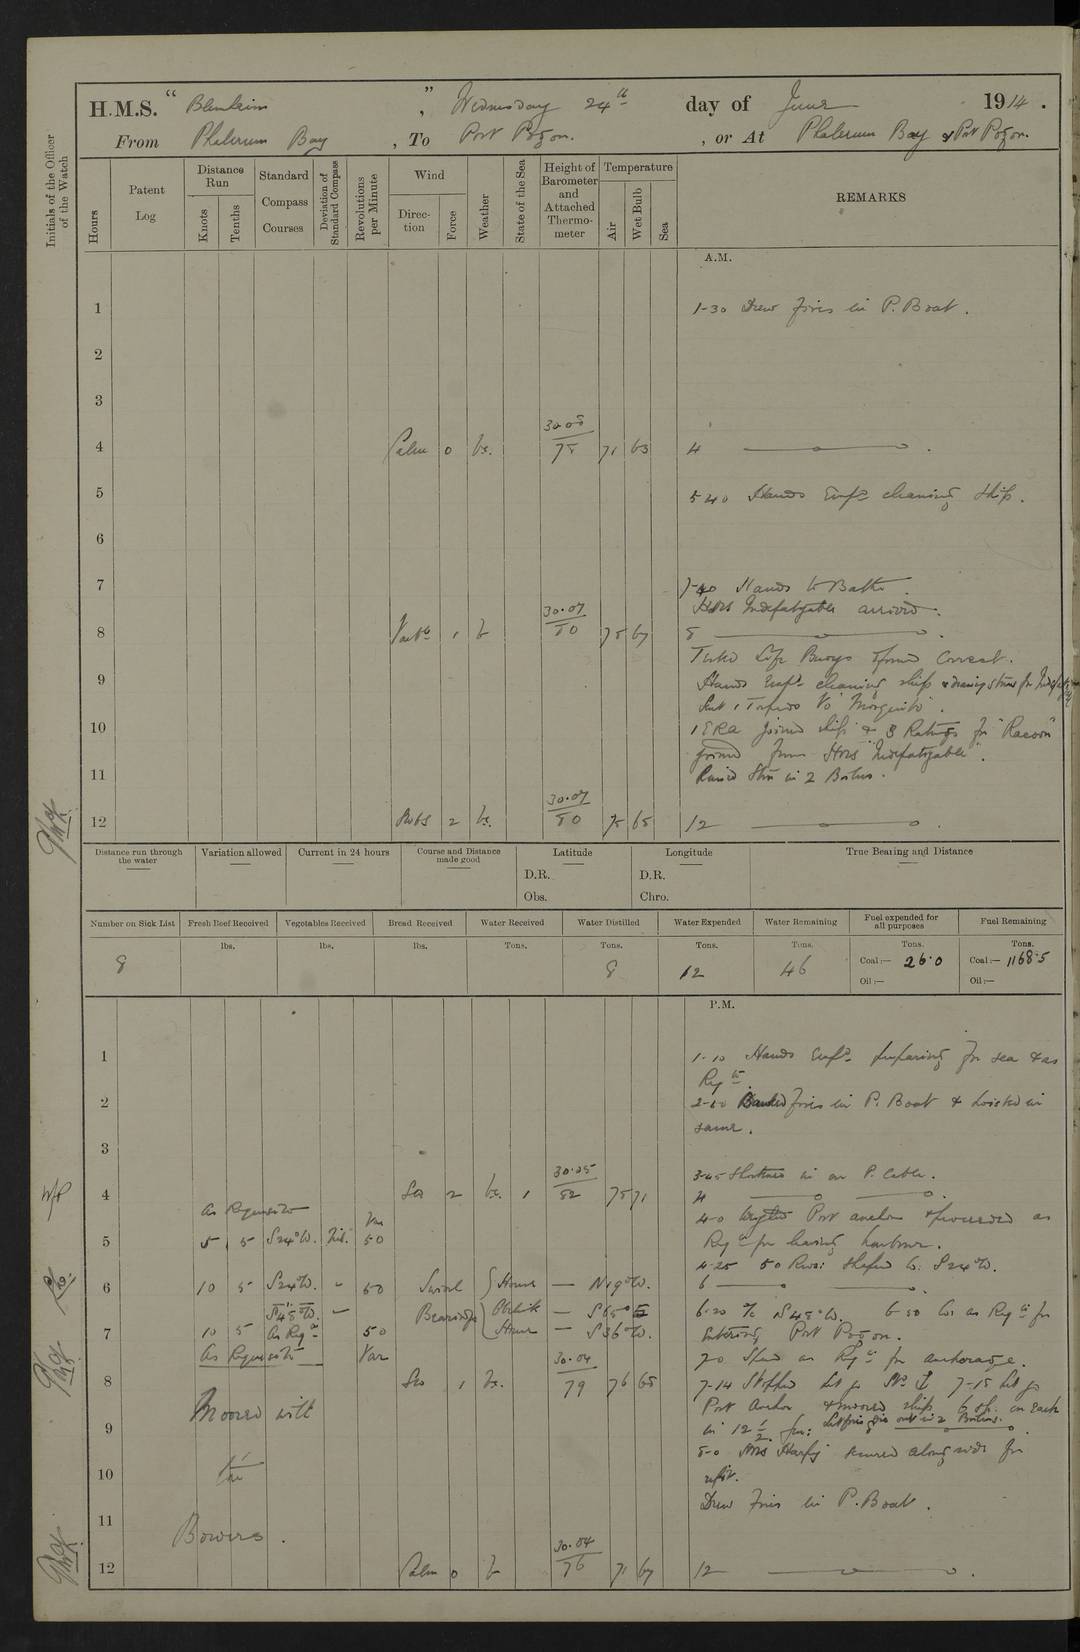 H.M.S. "Blenheim", Wednesday 24th day of June 1914.
From Phalerum Bay, To Port Pogon., or At Phalerum Bay & Port Pogon.
Initials of the Officer of the Watch
Hours
Patent Log
Distance Run
Knots
Tenths
Standard Compass Courses
Deviation of Standard Compass
Revolutions per Minute
Wind
Direction
Force
Weather
State of the Sea
Height of Barometer and Attached Thermometer
Temperature
Air
Wet Bulb
Sea
REMARKS
A.M.
1 1-30 Drew fires in P. Boat.
2
3
4 Calm 0 bc. 30.08 78 71 63 4
5 5 40 Hands Empd cleaning ship.
6
7 7-40 Hands to Bathe.
HMS Indefatigable arrived.
8 Varble 1 b 30.07 80 75 67 8
Tested Life Buoys & found correct.
9 Hands Empd cleaning ship & drawing stores for Indefatigable
Sent 1 Torpedo to "Mosquito".
10 1 ERA joined ship & 3 Ratings for "Racoon"
joined from HMS "Indefatigable".
11 Raised Stm in 2 Boilers.
12 2 bc. 30.07 80 75 65 12
Distance run through the water
Variation allowed
Current in 24 hours
Course and Distance made good
Latitude
D.R.
Obs.
Longitude
D.R.
Chro.
True Bearing and Distance
Number on Sick List
Fresh Beef Received
Vegetables Received
Bread Received
Water Received
Water Distilled
Water Expended
Water Remaining
Fuel expended for all purposes
Fuel Remaining
lbs. lbs. lbs. Tons. Tons. Tons. Tons. Tons. Tons.
8 8 12 46 Coal:— 26.0 Coal:— 1168.5
Oil:— Oil:—
P.M.
1 1-10 Hands Empd preparing for sea & as
Reqte.
2 Banked fires in P. Boat & hoisted in
same.
3
3-45 Shortened in on P. Cable.
4 2 bc. 1 30.05 82 75 71 4
As Requisite 4-0 Weighed Port anchor & proceeded as
5 5 5 S24°W. Nil. Var 50 Reqte for leaving harbour.
4-25 50 Revs: Shaped Co. S24°W.
6 10 5 S24°W. " 50 Swinl Bearings House — N19°W. 6
S48°W. " Obelisk — S65°E 6-20 a/c S48°W. 6-50 Co. as Reqte for
7 10 5 As Reqte 50 House — S36°W. entering Port Pogon.
As Requisite Var 7-0 Speed as Reqte for anchorage.
8 1 bc. 30.04 79 76 65 7-14 Stopped let go Stbd 7-15 let go
Port Anchor & moored ship 6 sh. on each
9 Moored with in 12½ fm: Let fires die out in 2 Boilers.
8-0 HMS Harpy secured alongside for
10 two refit.
Drew fires in P. Boat.
11 Bowers.
12 Calm 0 b 30.04 76 71 67 12